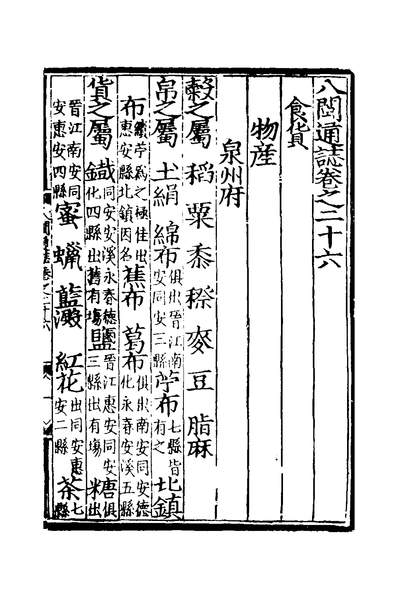 八閩通誌卷之二十六
食貨
物産
泉州府
穀之屬 稻 粟 黍 穄 麥 豆 脂麻
帛之屬 土絹 綿布俱出晉江南安同安三縣 苧布七縣皆有之 北鎮
布績苧為之極佳出惠安縣北鎮因名 蕉布 葛布俱出南安同安德化永春安溪五縣
貨之屬 鐵同安安溪永春德化四縣出舊有場 鹽晉江惠安同安三縣出有場 糖出俱
晉江南安同安惠安四縣 蜜 蠟 藍澱 紅花出同安惠安二縣 茶七縣